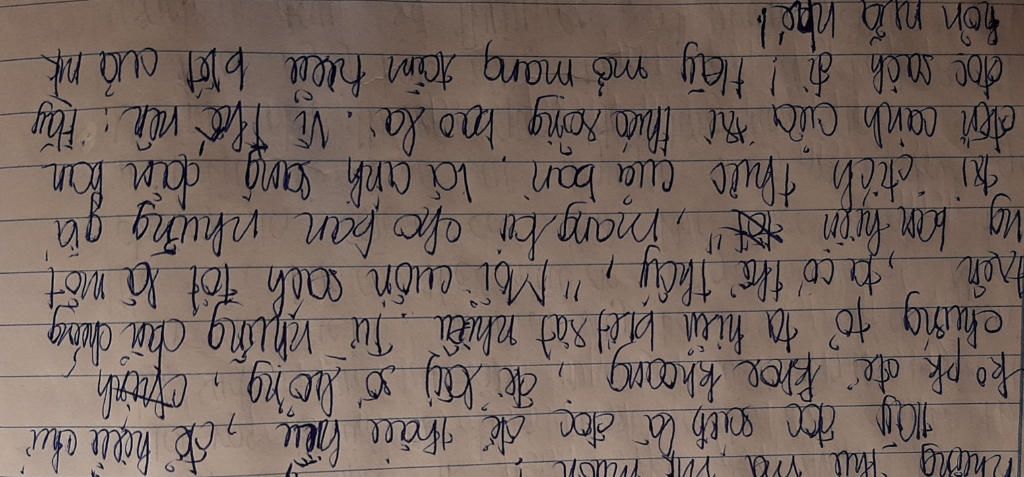 Những thứ mà mk muốn
Hãy đọc sách là đọc để thấu hiểu, để hiểu chứ
ko pk để khoe khoang, để lấy số lượng,
chứng tỏ ta hiểu biết rất nhiều. Từ những chứng
trên, ta có thể thấy, "Mỗi cuốn sách tốt là một
ng bạn hiền", mang lại cho bạn những giá
trị đích thực của bạn, là ánh sáng dẫn bạn
đến cánh cửa tri thức rộng bao la. Vì thế nên: Hãy
đọc sách đi! Hãy mở mang tầm hiểu biết của mk
hơn nữa nhé!